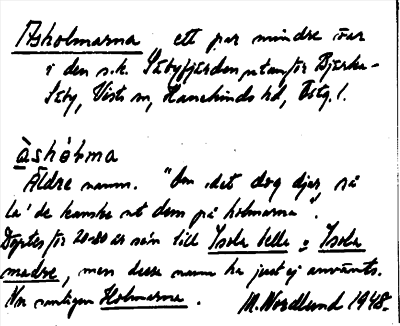 Asholmarna ett par mindre öar
i den s.k. Säbyfjärden utanför Bjärka-
Säby, Vists sn, Hanekinds hd, Östg. l.
àshòl̀ma
Äldre namn. "Om det dog djur, så
la' de kanske ut dem på holmarna".
Döptes för 20-30 år sen till Isola bella o Isola
madre, men dessa namn ha just ej använts.
Nu vanligen Holmarna.
M. Nordlund 1948.